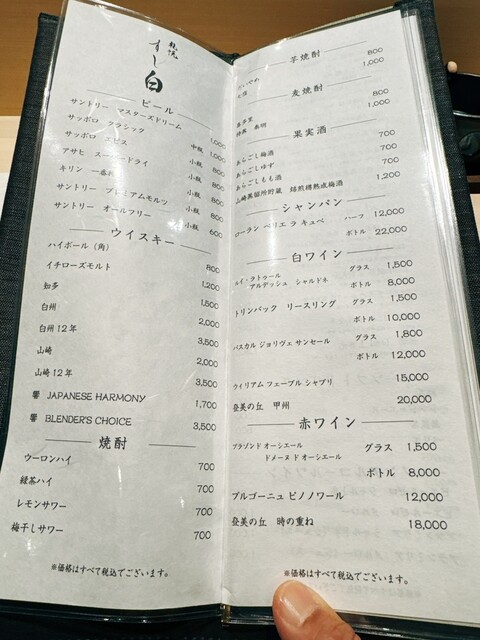 札幌
すし白
ビール
サントリー マスターズドリーム 1,000
サッポロ クラシック 中瓶 1,000
サッポロ ヱビス 小瓶 800
アサヒ スーパードライ 小瓶 800
キリン 一番搾り 小瓶 800
サントリー プレミアムモルツ 小瓶 800
サントリー オールフリー 小瓶 600
ウイスキー
ハイボール(角) 800
イチローズモルト 1,200
知多 1,500
白州 2,000
白州12年 3,500
山崎 2,000
山崎12年 3,500
響 JAPANESE HARMONY 1,700
響 BLENDER'S CHOICE 3,500
焼酎
ウーロンハイ 700
緑茶ハイ 700
レモンサワー 700
梅干しサワー 700
※価格はすべて税込でございます。
芋焼酎
だいやめ 800
1,000
麦焼酎
喜多里 800
1,000
果実酒
あらごし梅酒 700
あらごしゆず 700
あらごしもも酒 700
山崎蒸留所貯蔵 焙煎樽熟成梅酒 1,200
シャンパン
ローラン ペリエ ラ キュベ ハーフ 12,000
ボトル 22,000
白ワイン
ルイ・ラトゥール
アルデッシュ シャルドネ グラス 1,500
ボトル 8,000
トリンバック リースリング グラス 1,500
ボトル 10,000
パスカル ジョリヴェ サンセール グラス 1,800
ボトル 12,000
ウィリアム フェーブル シャブリ 15,000
登美の丘 甲州 20,000
赤ワイン
ブラゾンド オーシエール
ドメーヌ ド オーシエール グラス 1,500
ボトル 8,000
ブルゴーニュ ピノノワール 12,000
登美の丘 時の重ね 18,000
※価格はすべて税込でございます。